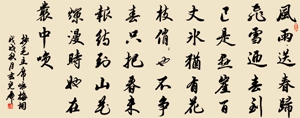 風雨送春歸
飛雪迎春到
已是懸崖百
丈冰猶有花
枝俏〻也不爭
春只把春來
報待到山花
爛漫時她在
叢中咲
抄毛主席咏梅詞
戊戌秋月